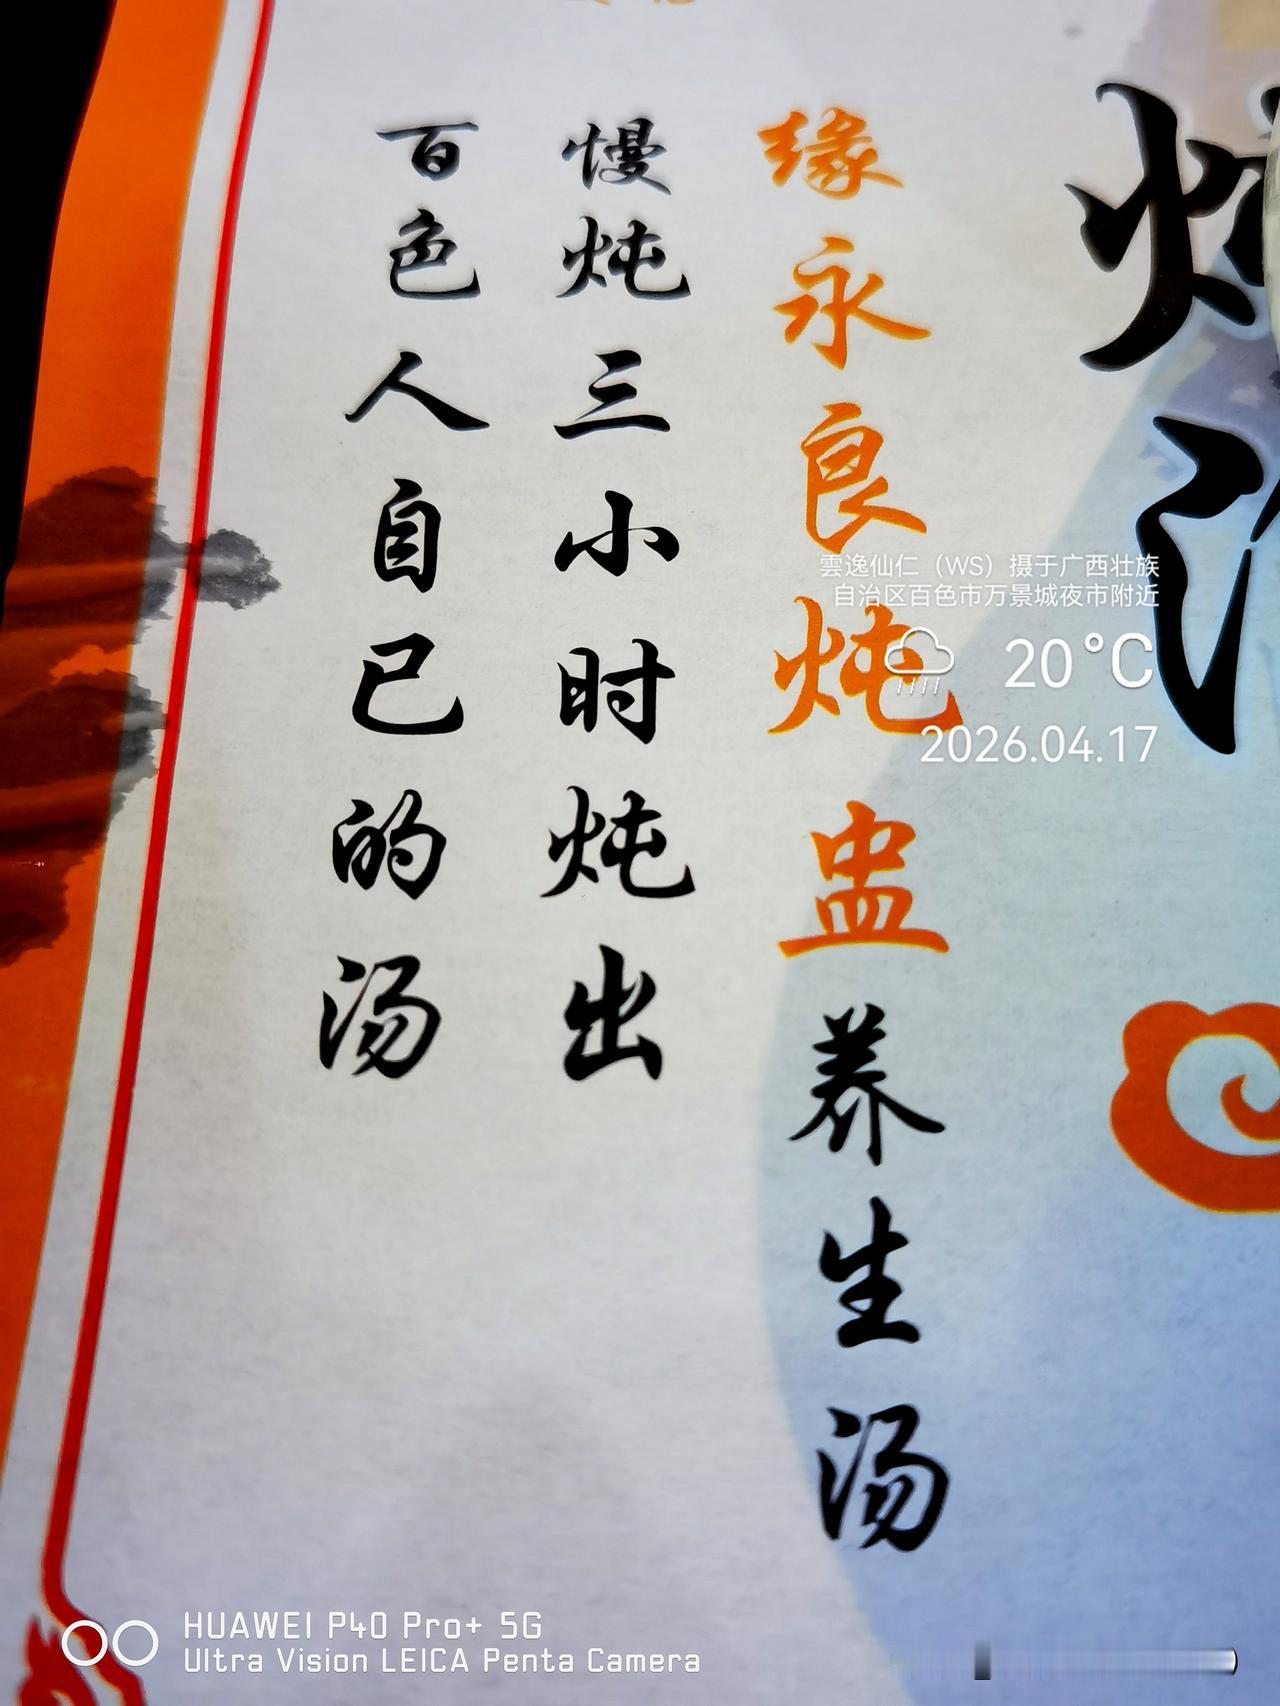 缘永良炖盅养生汤
慢炖三小时炖出
百色人自己的汤
雲逸仙仁（WS）摄于广西壮族
自治区百色市万景城夜市附近
20°C
2026.04.17
HUAWEI P40 Pro+ 5G
Ultra Vision LEICA Penta Camera